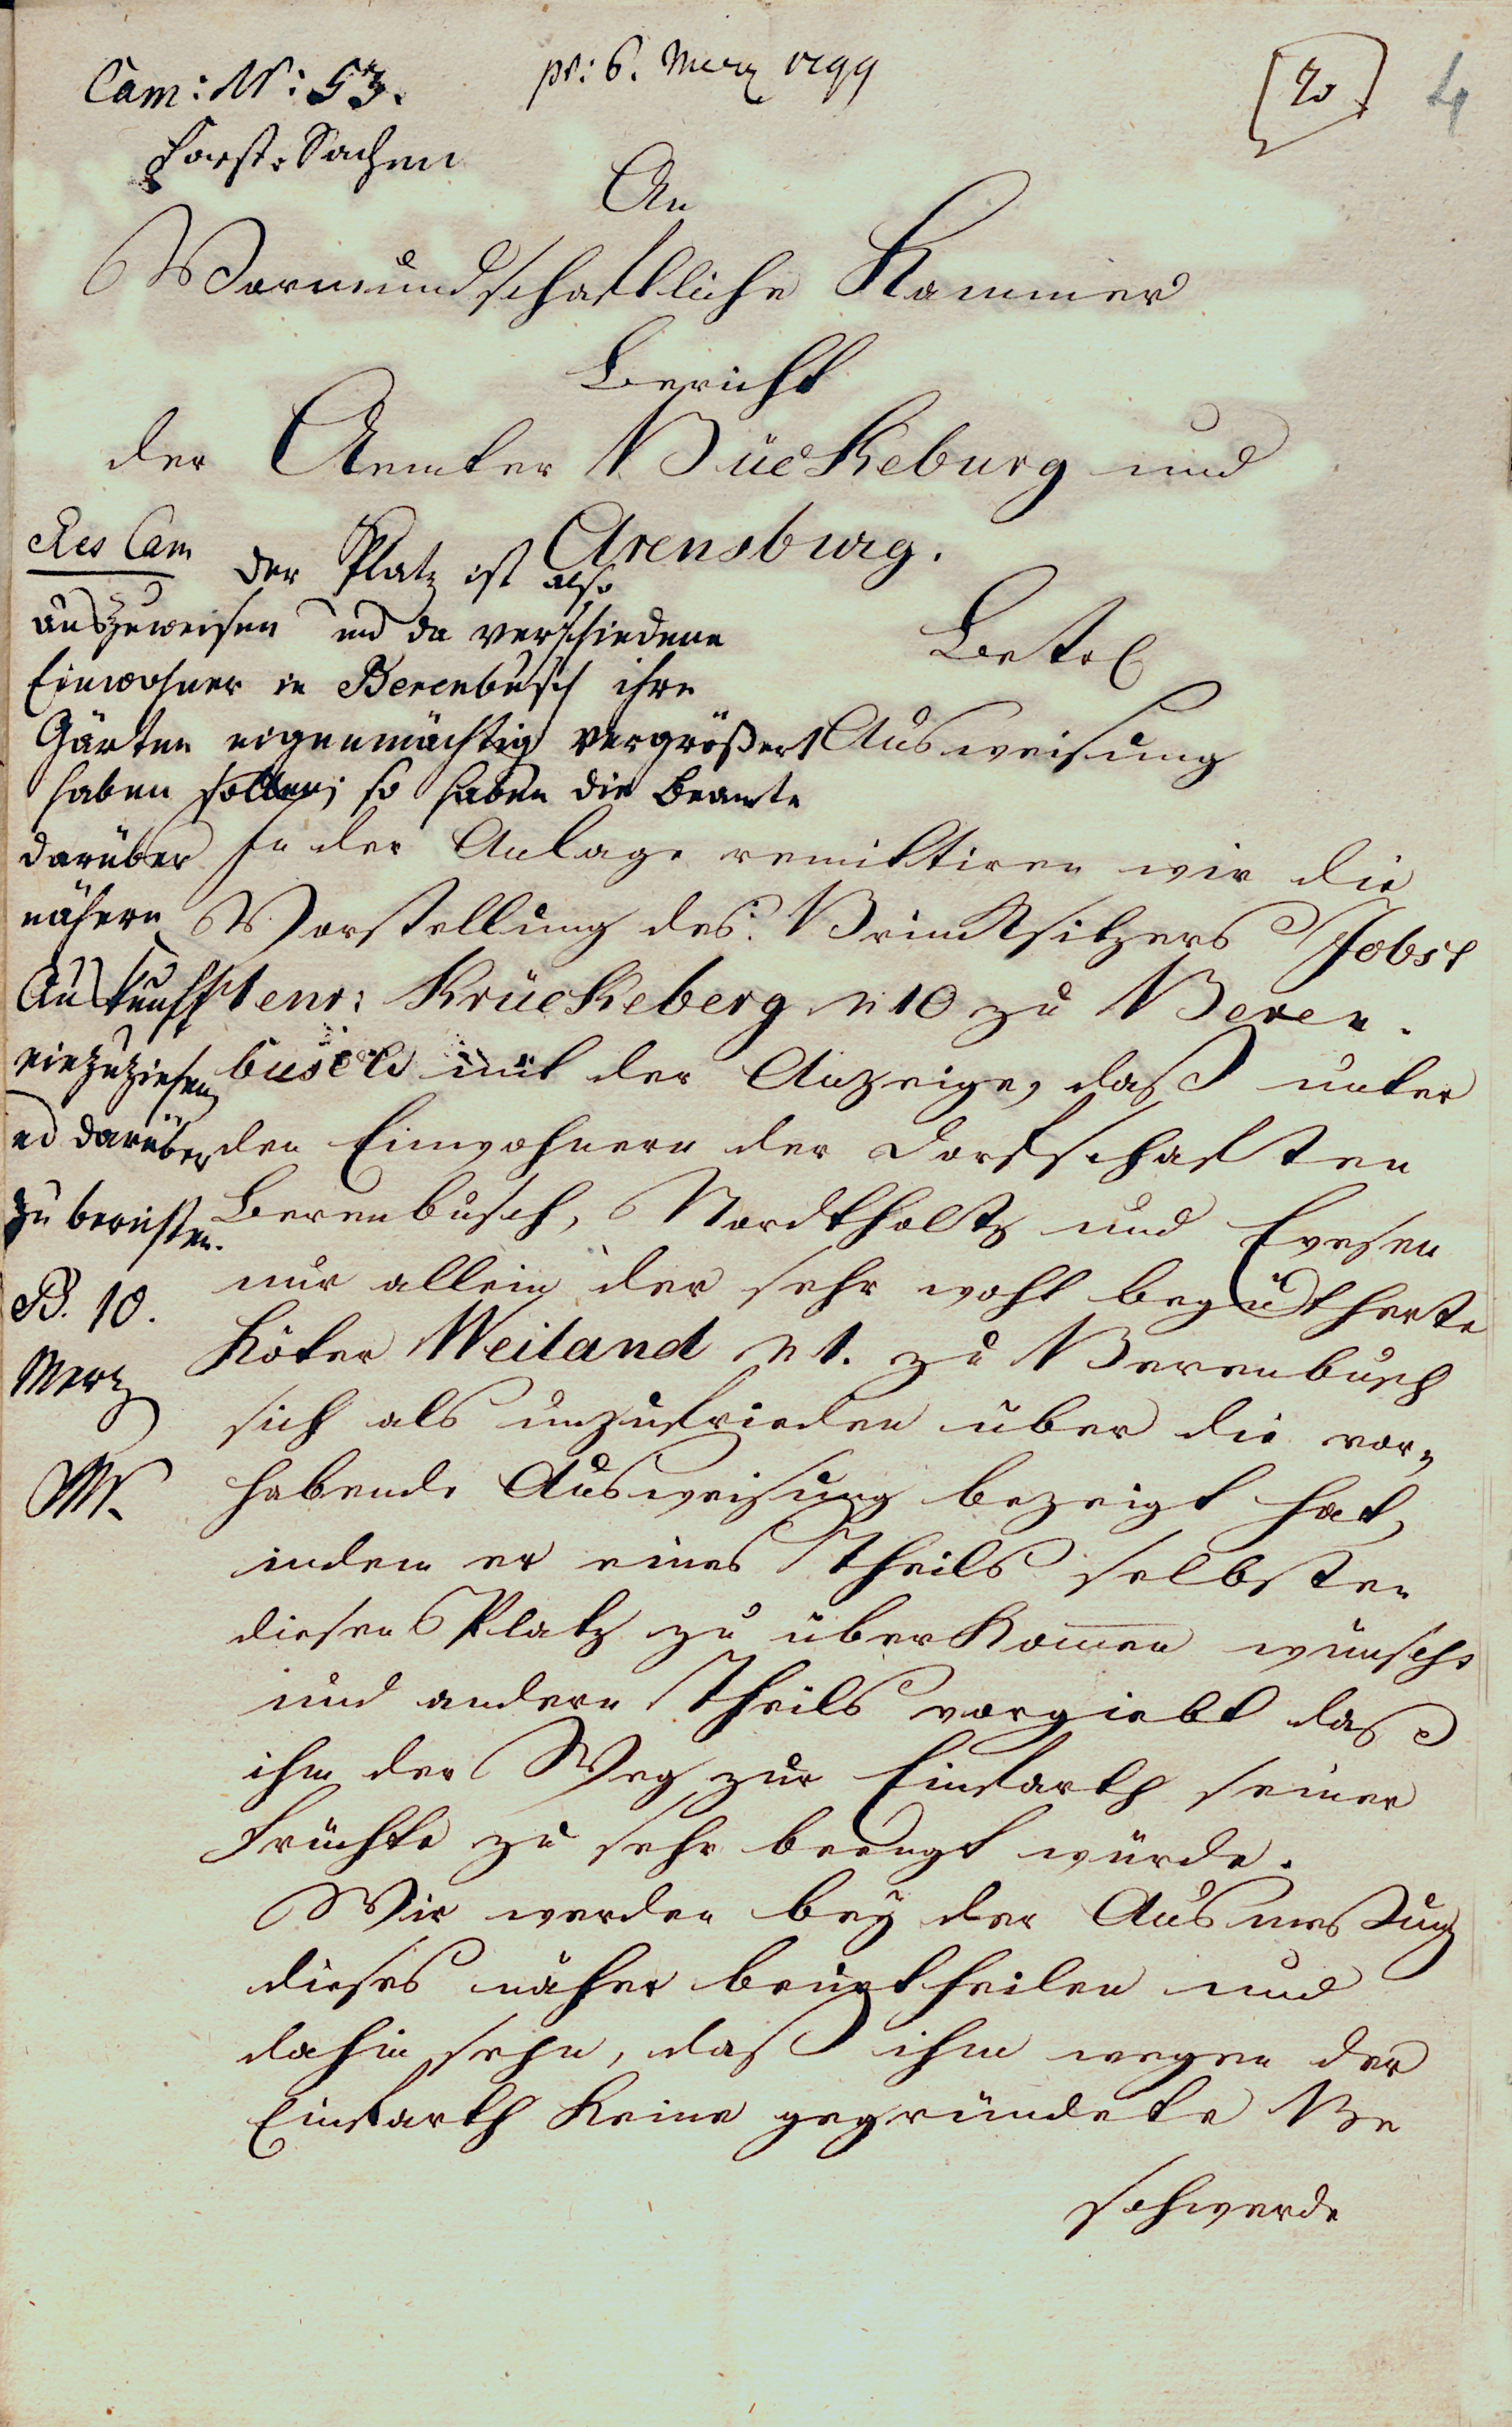 Cam: N: 53.
pr: 6. Merz 1799
[20]
4
Forst-Sachen
An
Vormundschaftliche Kammer
Bericht
der Aemter Bückeburg und
Arensburg.
Betr.
Ausweisung
Res Cam
der Platz ist also
auszuweisen und da verschiedene
Einwohner in Berenbusch ihre
Gärten eigenmächtig vergrößert
haben sollen; so haben die Beamte
darüber
nähern
Auskunfft
einzuziehen
und darüber
zu berichten.
B. 10.
Merz
In der Anlage remittiren wir die
Vorstellung des Brincksitzers Jobst
Krückeberg n 10 zu Beren-
busch mit der Anzeige, daß unter
den Einwohnern der Dorfschaften
Berenbusch, Nordtholtz und Evesen
nur allein der sehr wohl begütherte
Köter Weiland n 1. zu Berenbusch
sich als unzufrieden über die vor-
habende Ausweisung bezeigt hat,
indem er eines Theils selbsten
diesen Platz zu überkommen wünscht
und andern Theils vorgiebt daß
ihm der Weg zur Einfarth seiner
Früchte zu sehr beengt würde.
Wir werden bey der Ausmessung
dieses näher beurtheilen und
dahin sehn, daß ihm wegen der
Einfarth keine gegründete Be
schwerde